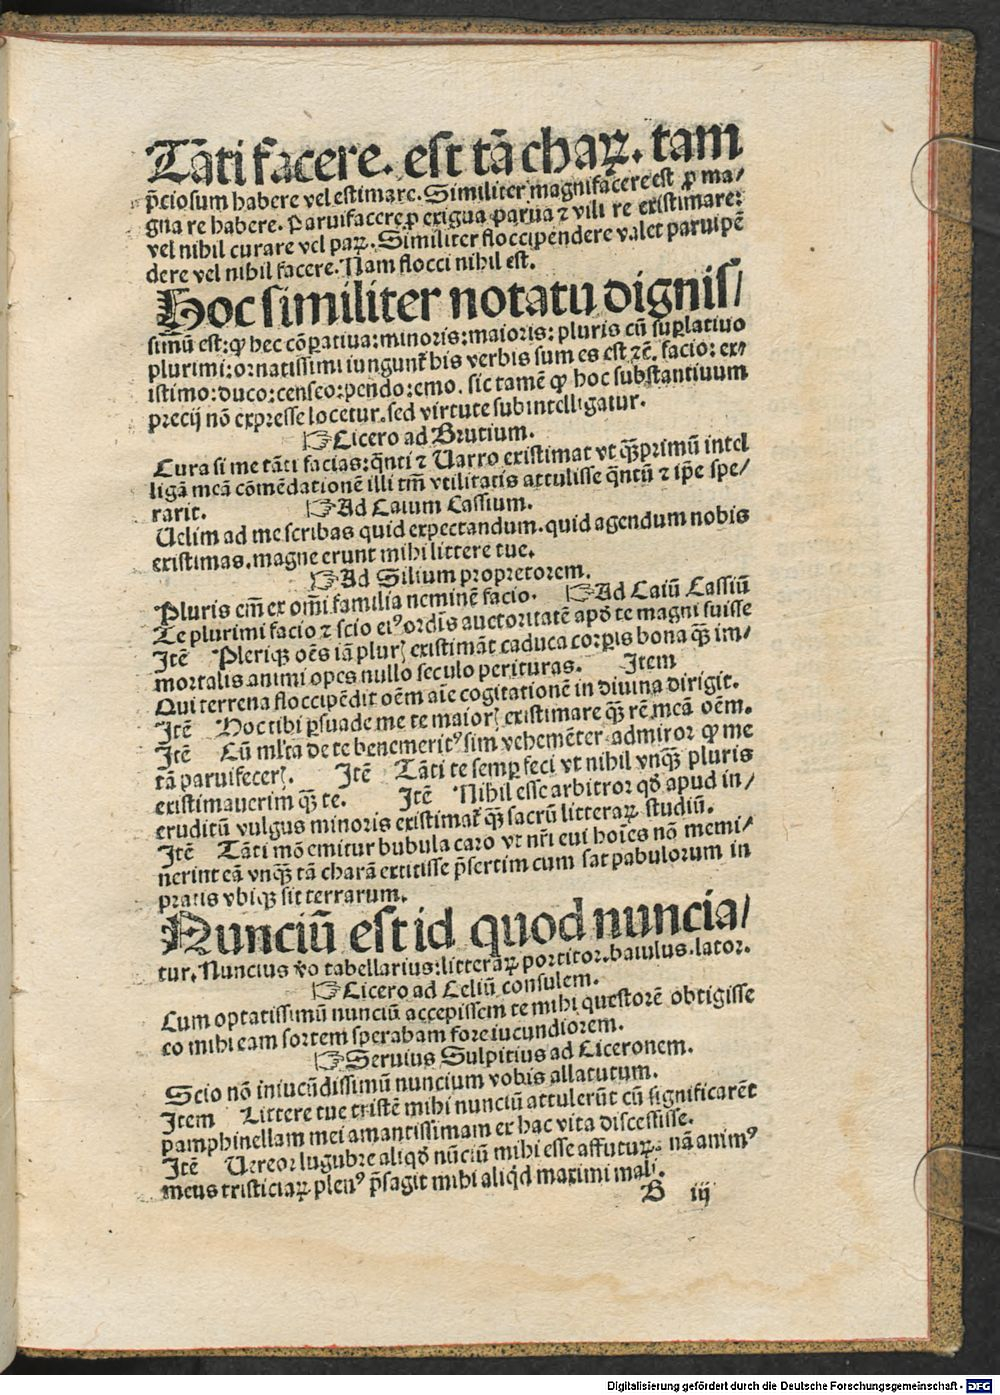 Tāti facere. est tā chaꝝ. tam
p̄ciosum habere vel estimare. Similiter magnifacere est ꝓ ma/
gna re habere. Paruifacere ꝓ exigua parua ⁊ vili re existimare:
vel nihil curare vel paꝝ. Similiter floccipendere valet paruipē
dere vel nihil facere. Nam flocci nihil est.
Hoc similiter notatu dignis/
simū est: ꝙ hec cōꝑatiua: minoris: maioris: pluris cū suꝑlatiuo
plurimi: ornatissimi iungunt᷑ his verbis sum es est ⁊c̄. facio: ex/
istimo: duco: censeo: pendo: emo. sic tamē ꝙ hoc substantiuum
precij nō expresse locetur. sed virtute subintelligatur.
☞ Cicero ad Brutium.
Cura si me tāti facias: q̄nti ⁊ Uarro existimat vt qꝫprimū intel
ligā meā cōmēdationē illi tm̄ vtilitatis attulisse q̄ntū ⁊ ip̄e spe/
rarit. ☞ Ad Caium Cassium.
Uelim ad me scribas quid expectandum. quid agendum nobis
existimas. magne erunt mihi littere tue.
☞ Ad Silium propretorem.
Pluris em̄ ex om̄i familia neminē facio. ☞ Ad Caiū Cassiū
Te plurimi facio ⁊ scio eiꝰ ordis auctoritatē apd̄ te magni fuisse
Itē Pleriqꝫ oēs iā plurꝭ existimāt caduca corꝑis bona qꝫ im/
mortalis animi opes nullo seculo perituras. Item
Qui terrena floccipēdit oēm aīe cogitationē in diuina dirigit.
Itē Hoc tibi ꝑsuade me te maiorꝭ existimare qꝫ rē meā oēm.
Itē Cū ml̄ta de te benemeritꝰ sim vehemēter admiror ꝙ me
tā paruifecerꝭ. Itē Tāti te semꝑ feci vt nihil vnqꝫ pluris
existimauerim qꝫ te. Itē Nihil esse arbitror qd̄ apud in/
eruditū vulgus minoris existimat᷑ qꝫ sacrū litteraꝝ studiū.
Itē Tāti mō emitur bubula caro vt nr̄i eui hoīes nō memi/
nerint eā vnqꝫ tā charā extitisse p̄sertim cum sat pabulorum in
pratis vbiqꝫ sit terrarum.
Nunciū est id quod nuncia/
tur. Nuncius v̄o tabellarius: litteraꝝ portitor. baiulus. lator.
☞ Cicero ad Celiū consulem.
Cum optatissimū nunciū accepissem te mihi questorē obtigisse
eo mihi eam sortem sperabam fore iucundiorem.
☞ Seruius Sulpitius ad Ciceronem.
Scio nō iniucūdissimū nuncium vobis allatutum.
Item Littere tue tristē mihi nunciū attulerūt cū significarēt
pamphinellam mei amantissimam ex hac vita discessisse.
Itē Uereor lugubre aliqd̄ nūciū mihi esse affutuꝝ. nā animꝰ
meus tristiciaꝝ plenꝰ p̄sagit mihi aliqd̄ maximi mali.
B iij
Digitalisierung gefördert durch die Deutsche Forschungsgemeinschaft - DFG